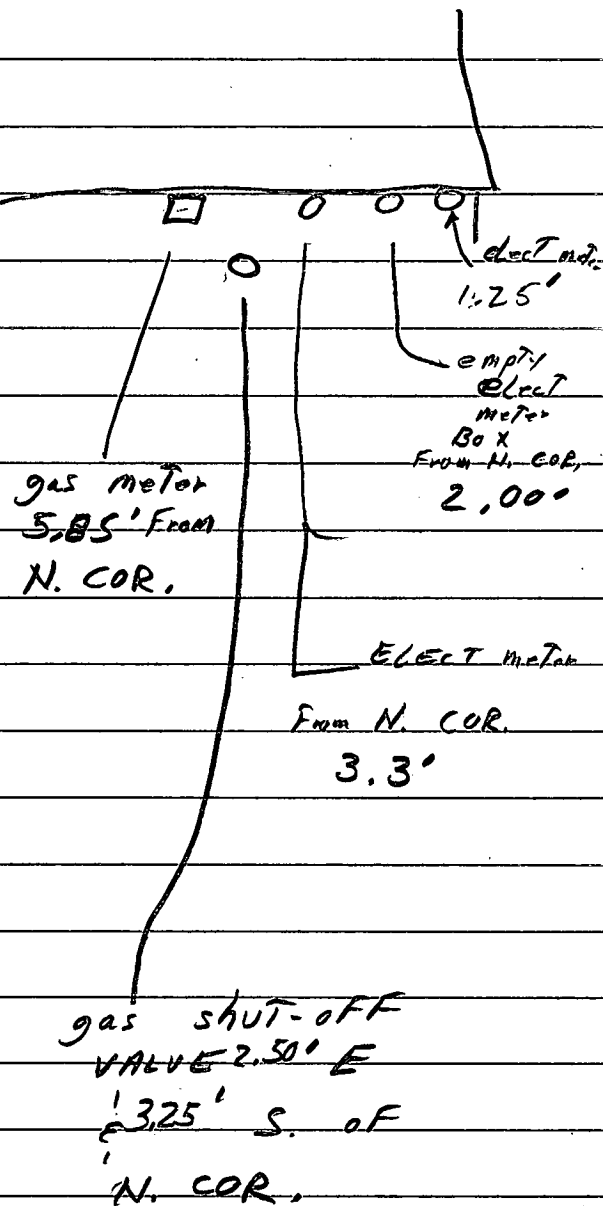 elect mete
1.25'
empty
elect
meter
Box
From N. COR.
2.00'
gas meter
5.85' From
N. COR.
ELECT meter
From N. COR.
3.3'
gas shut-off
VALVE 2.50' E
& 3.25' S. of
N. COR.